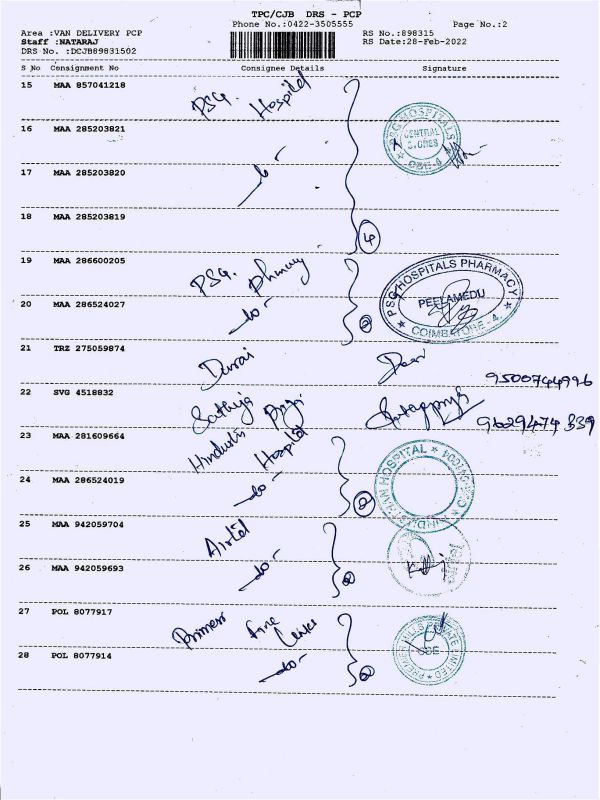 TPC/CJB DRS - PCP
Phone No.:0422-3505555 Page No.:2
Area :VAN DELIVERY PCP RS No.:898315
Staff :NATARAJ RS Date:28-Feb-2022
DRS No. :DCJB89831502
S No Consignment No Consignee Details Signature
15 MAA 857041218 PSG. Hospital
16 MAA 285203821 -do- PSG HOSPITALS CENTRAL STORES CBE-4
17 MAA 285203820
18 MAA 285203819 4
19 MAA 286600205 PSG. Pharmacy PSG HOSPITALS PHARMACY
20 MAA 286524027 -do- 2 PEELAMEDU COIMBATORE-4.
21 TRZ 275059874 Durai 9500744996
22 SVG 4518832 Sathya 9629474339
23 MAA 281609664 Hindustan Hospital HOSPITAL
24 MAA 286524019 -do- 2
25 MAA 942059704 Airtel
26 MAA 942059693 -do- 2
27 POL 8077917 Premier Fine
28 POL 8077914 -do- 2 CBE LIMITED